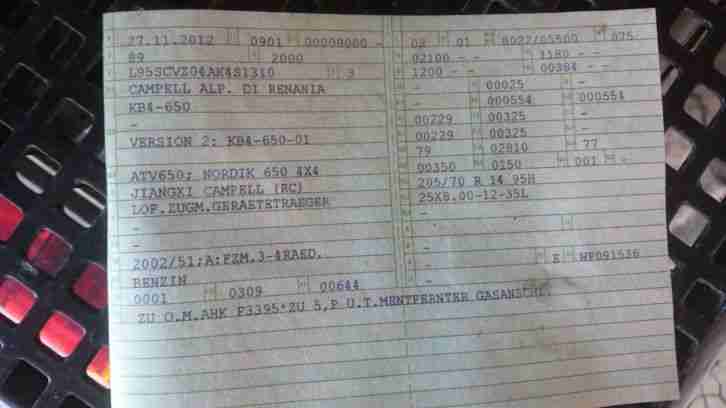 27.11.2012 0901 00009000 -
89 2000
L95SCVZ04AK4S1310 3
CAMPELL ALP. DI RENANIA
KB4-650
-
VERSION 2: KB4-650-01
ATV650; NORDIK 650 4X4
JIANGXI CAMPELL (RC)
LOF.ZUGM.GERAETETRAEGER
-
-
2002/51;A:FZM.3-4RAED.
BENZIN
0001 0309 00644
02 01 8022/05500 075
02100 - - 1180 - -
1200 - - 00384 - -
- 00025 -
- 000554 000554
00229 00325 -
00229 00325 -
79 02810 77
00350 0150 001 -
205/70 R 14 95H
25X8.00-12-35L
-
-
-
- E WP091536
-
ZU O.M.AHK F3395*ZU 5,P U.T.MENTFERNTER GASANSCHL.